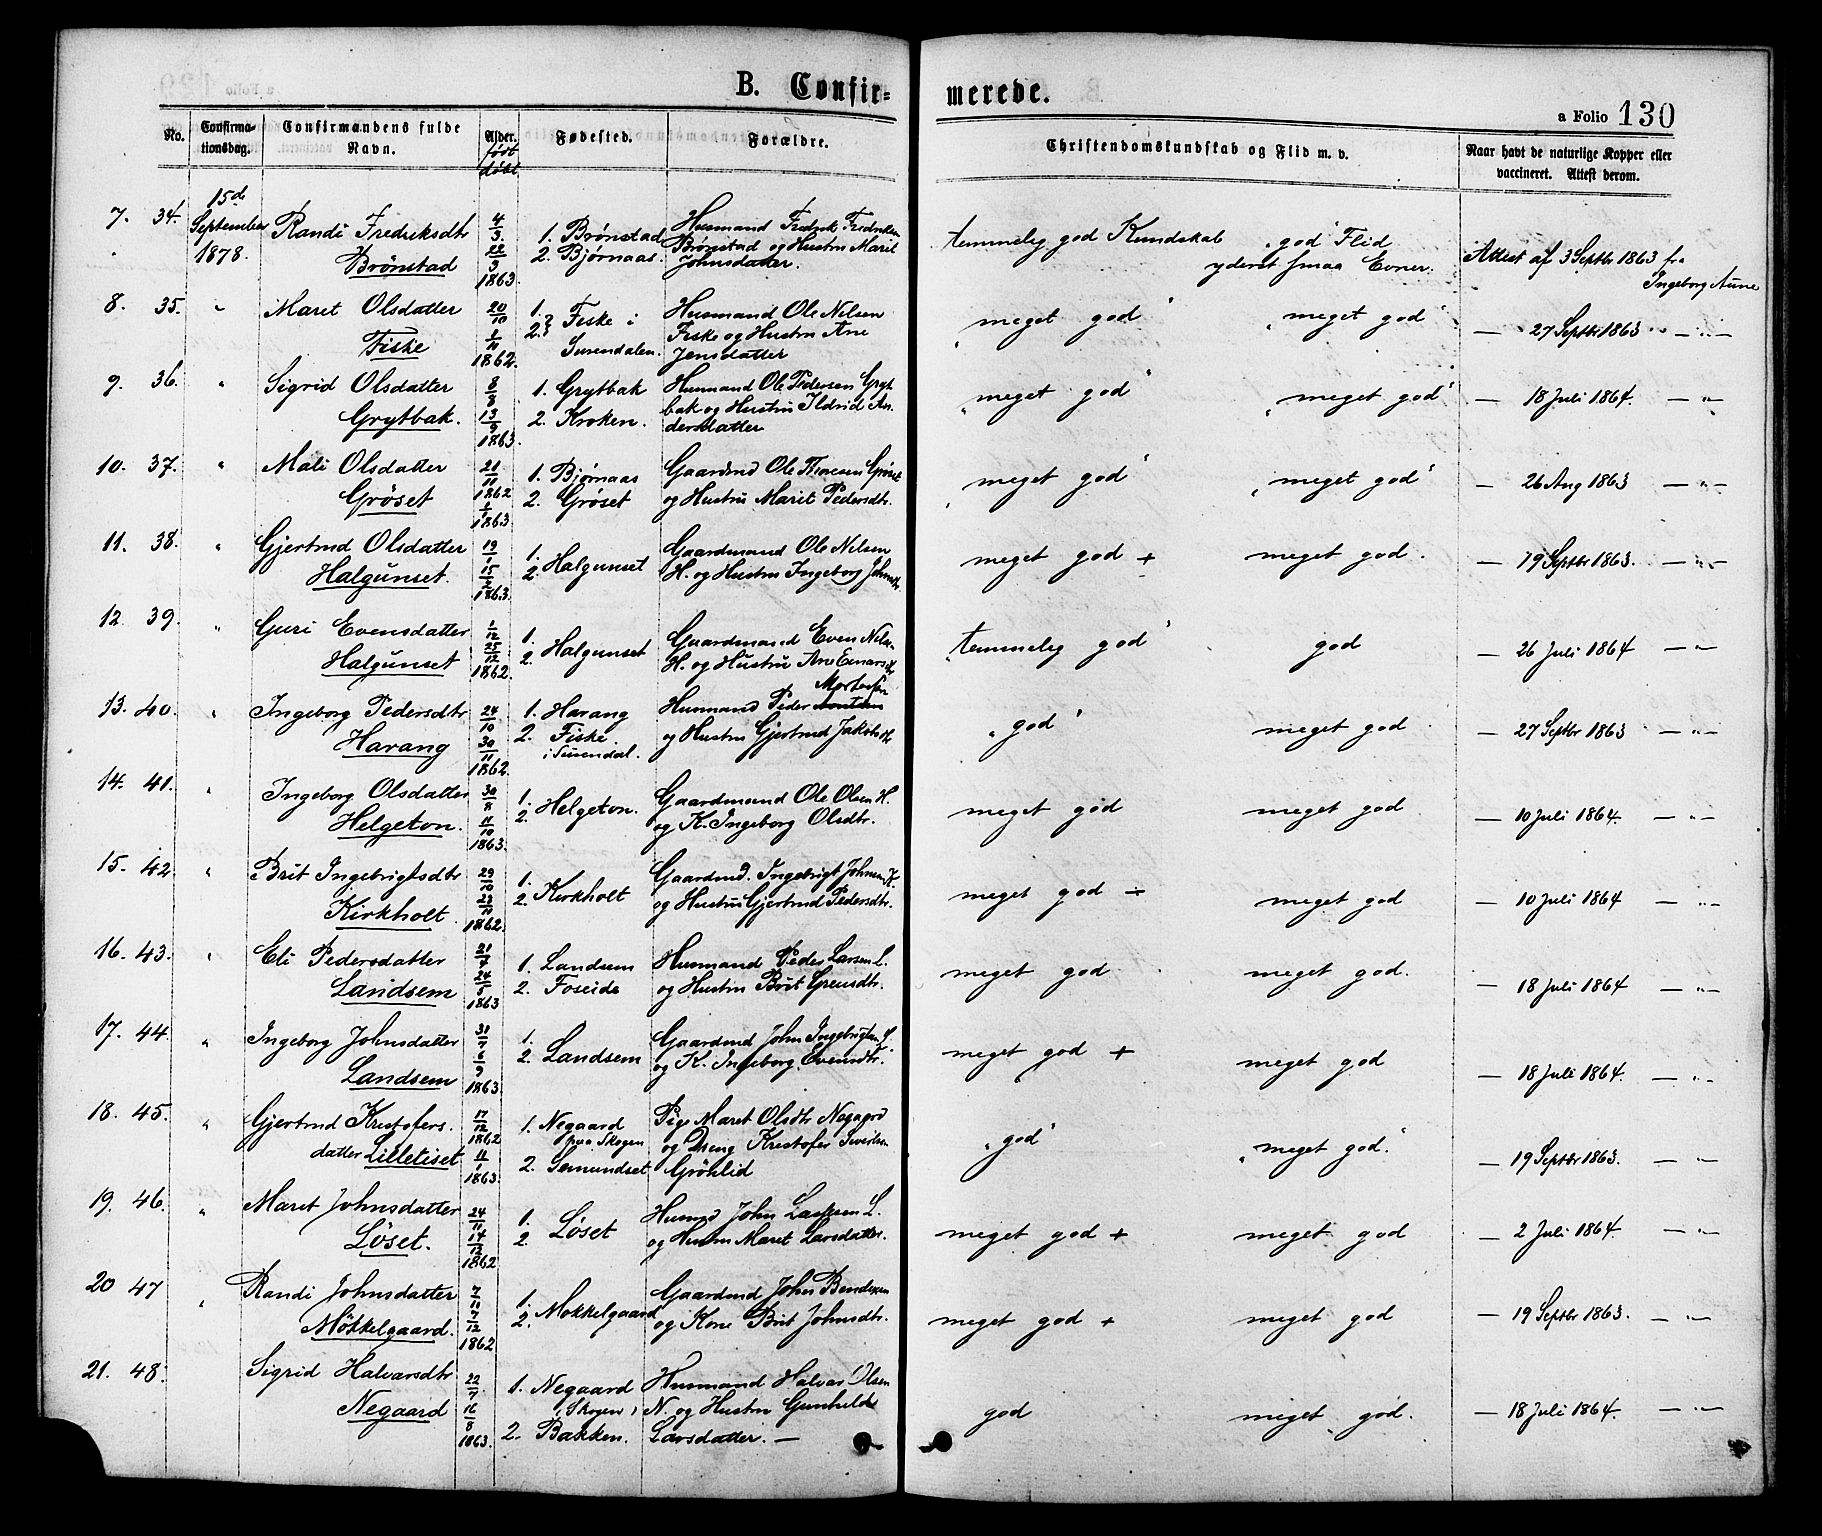 B. Confir= merede.
a Folio 130
No. Confirma-tionsdag. Confirmandens fulde Navn. Alder. født døbt Fødested. Forældre. Christendomskundskab og Flid m. v. Naar havt de naturlige Kopper eller vaccineret. Attest derom.
7. 34. 15de September 1878. Randi Fredriksdtr Brönstad 4/3 22/3 1863. 1. Brönstad 2. Bjørnaas. Husmand Fredrik Fredriksen Brönstad og Hustru Marit Johnsdatter. temmelig god Kundskab "god" Flid yderst smaa Evner. Attest af 3 Septbr 1863 fra Ingeborg Aune
8. 35. " Maret Olsdatter Fiske 20/10 1862. 1. 2. Fiske i Surendalen. Husmand Ole Nilsen Fiske og Hustru Ane Jensdatter "meget god" "meget god" — 27 Septbr 1863 — " —
9. 36. " Sigrid Olsdatter Grytbak. 8/8 13/9 1863. 1. Grytbak 2. Kroken. Husmand Ole Pedersen Grytbak og Hustru Ildrid Andersdatter "meget god" "meget god" — 18 Juli 1864. — " —
10. 37. " Mali Olsdatter Gröset 21/11 1862 1863. 1. Bjørnaas 2. Gröset Gaardmd Ole Thoresen Gröset og Hustru Maret Pedersdtr. "meget god" "meget god" — 26 Aug 1863 — " —
11. 38. " Gjertrud Olsdatter Halgunset. 19/1 15/2 1863. 1. 2. Halgunset Gaardmand Ole Nilsen H. og Hustru Ingeborg Johnsdtr meget god + meget god. — 19 Septbr 1863. — " —
12. 39. " Guri Evensdatter Halgunset 1/12 25/12 1862. 1. 2. Halgunset Gaardmand Even Nilsen H. og Hustru Ane Einarsdtr "temmelig god" god — 26 Juli 1864 — " —
13. 40. " Ingeborg Pedersdtr Harang 24/10 30/11 1862. 1. Harang 2. Fiske i Surendal. Husmand Peder Mortensen og Hustru Gjertrud Jakobsdtr "god" meget god — 27 Septbr 1863 — " —
14. 41. " Ingeborg Olsdatter Helgeton. 30/8 11/10 1863. 1. 2. Helgeton. Gaardmand Ole Olsen H. og K. Ingeborg Olsdtr. meget god meget god — 10 Juli 1864. — " —
15. 42 " Brit Ingebrigtsdtr Kirkholt 29/10 1862. 1. 2. Kirkholt Gaardmd. Ingebrigt Johnsen K. og Hustru Gjertrud Pedersdtr. meget god ÷ meget god — 10 Juli 1864 — " —
16. 43. " Eli Pedersdatter Landsem 21/4 24/5 1863 1. Landsem 2. Foseide Husmand Peder Larsen L. og Hustru Brit meget god meget god. — 18 Juli 1864 — " —
17. 44. " Ingeborg Johnsdatter Landsem 31/7 6/9 1863. 1. 2. Landsem Gaardmd John Ingebrigtsen L. og K. Ingeborg Evensdtr. meget god + meget god — 18 Juli 1864. — " —
18. 45. " Gjertrud Kristofersdatter Lilletiset 17/12 1862 11/1 1863. 1. Negaard paa Skogen 2. Semundset Pige Maret Olsdtr Negaard og Dreng Kristofer Sivertsen Grönlid "god" "meget god." — 19 Septbr 1863. — " —
19. 46. " Maret Johnsdatter Löset. 24/11 14/12 1862 1. 2. Löset Husmd John Larssen L. og Hustru Maret Larsdatter. meget god + meget god — 2 Juli 1864. — " —
20 47 " Randi Johnsdatter Mökkelgaard. 7/10 7/12 1862 1. 2. Mokkelgaard Gaardmd John Bendixen og Kone Brit Johnsdtr. meget god + meget god — 19 Septbr 1863. — " —
21. 48. Sigrid Halvarsdtr Negaard 22/7 16/8 1863. 1. Negaard (Skogen) 2. Bakken. Husmand Halvar Olsen N. og Hustru Gunhild Larsdatter. — god meget god. — 18 Juli 1864. — " —